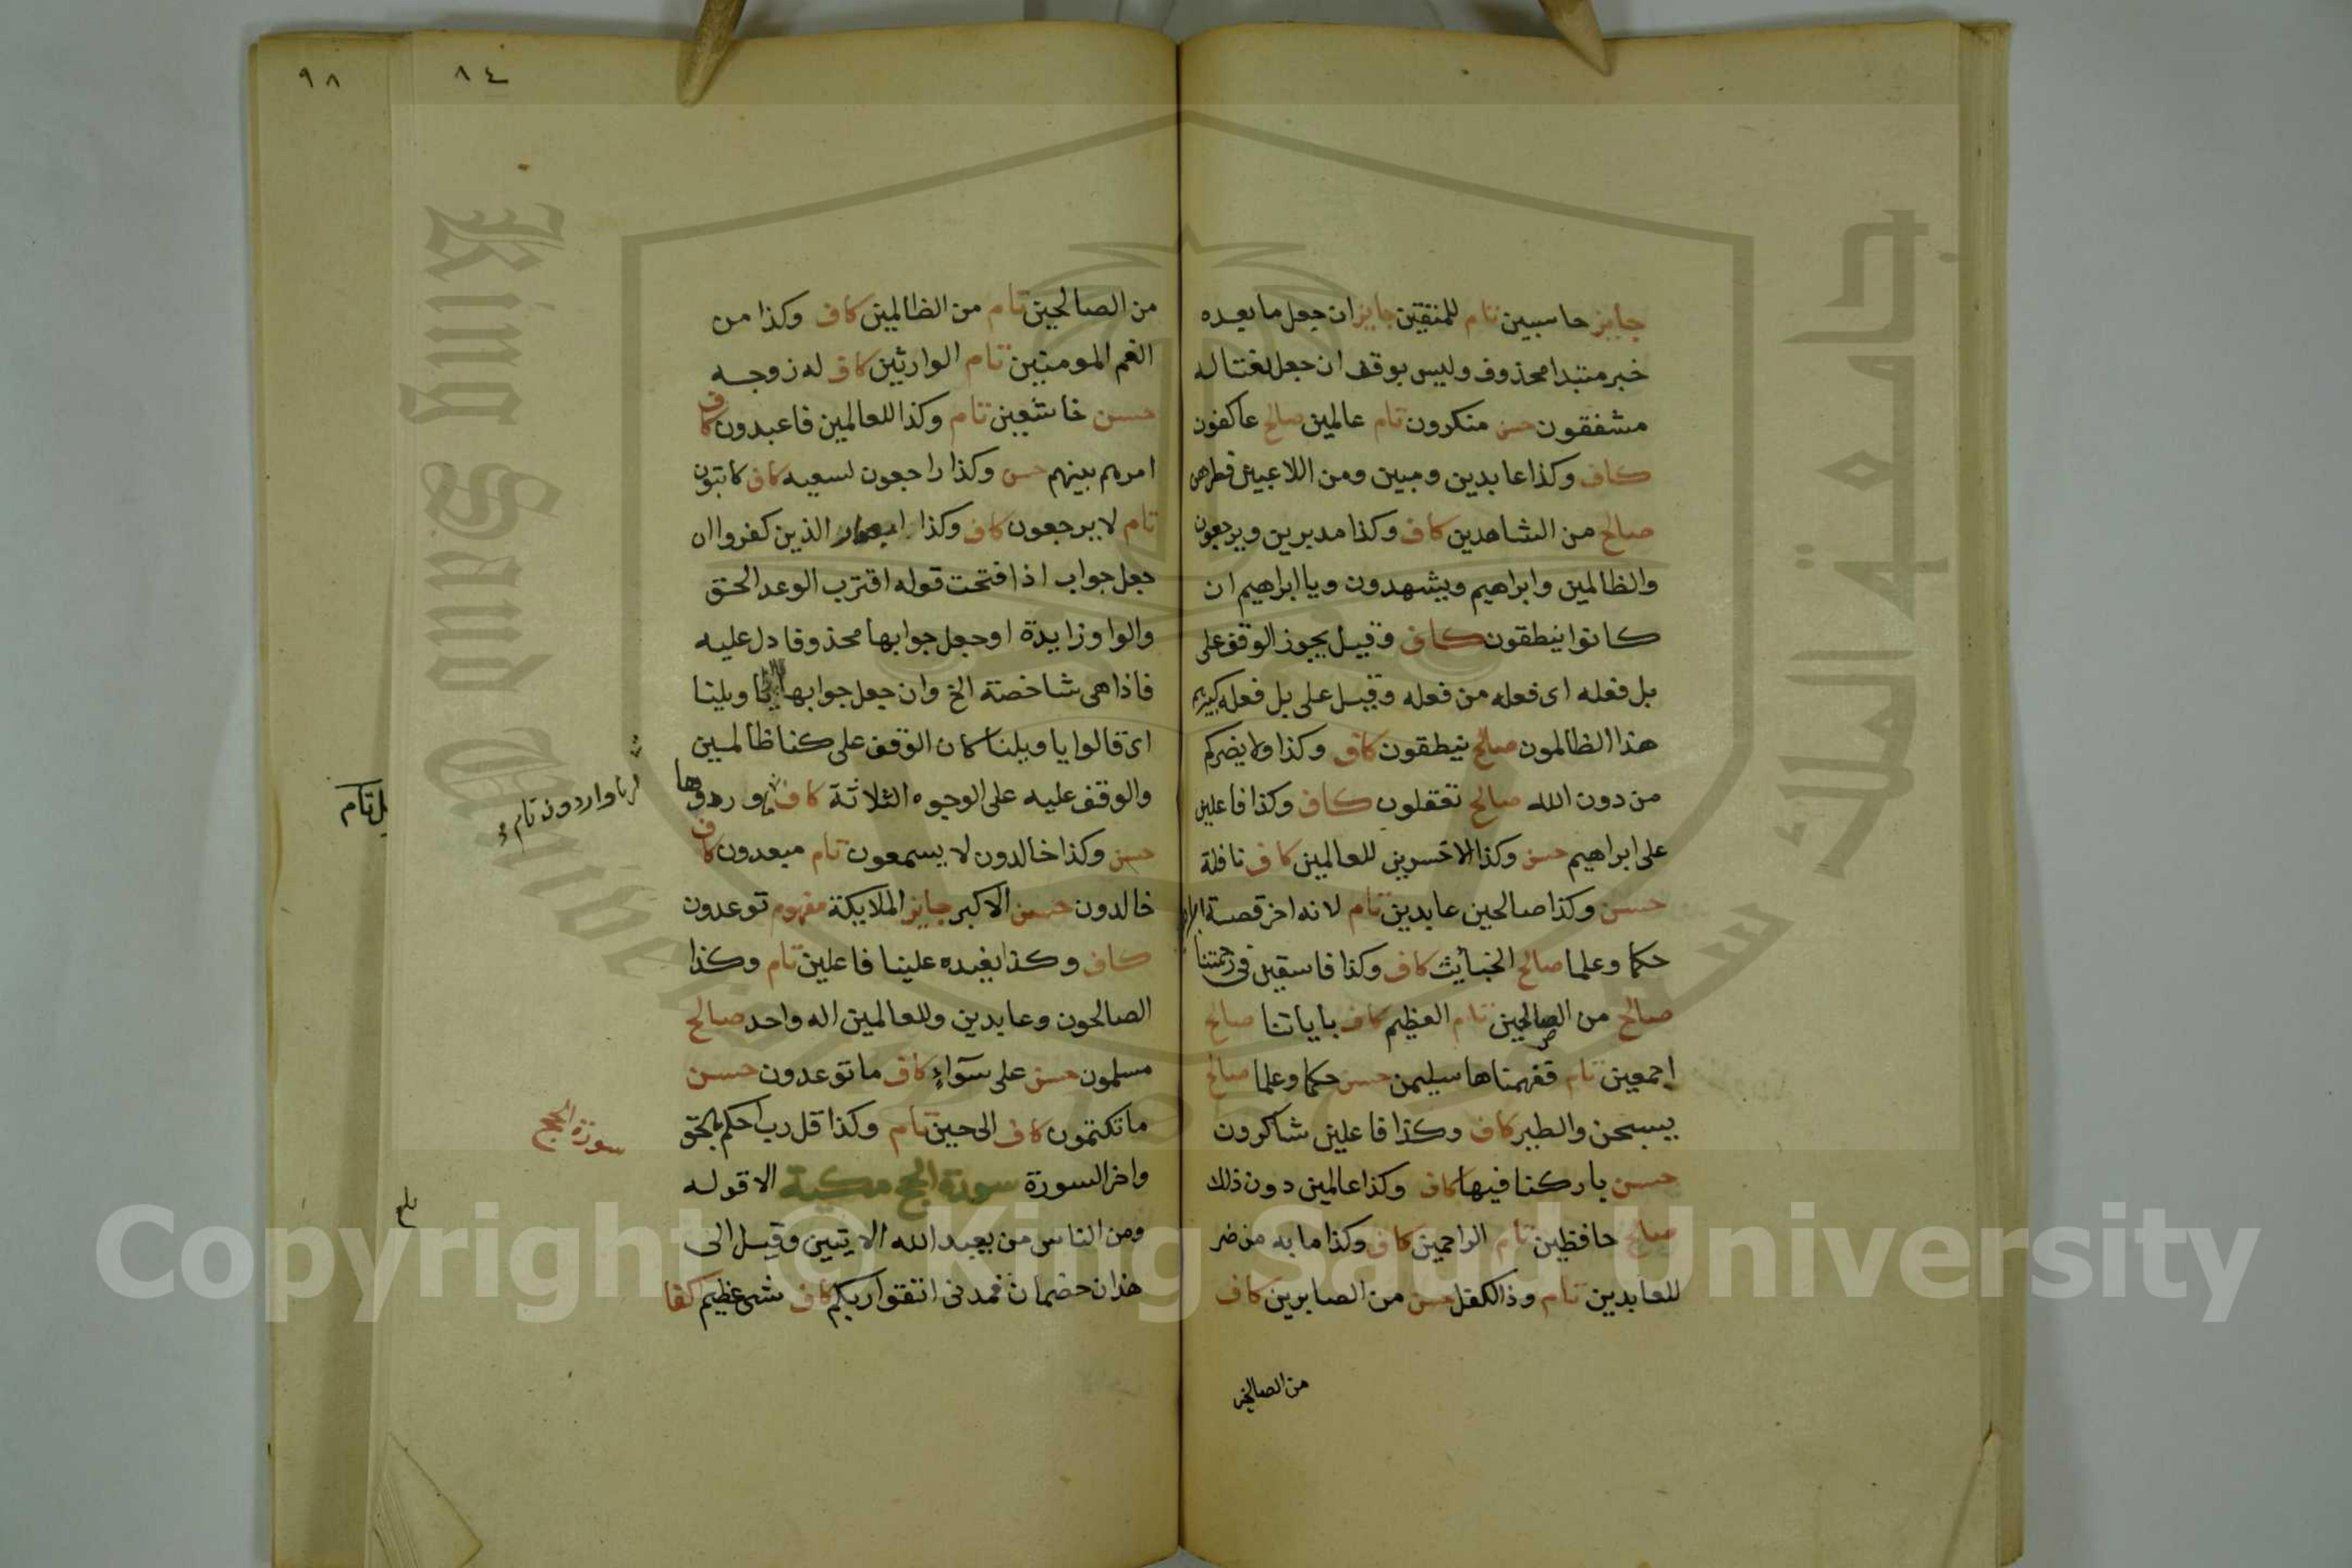 جايز حاسبين تام للمتقين جايز ان جعل ما بعده
خبر مبتدا محذوف وليس بوقف ان جعل نعتا له
مشفقون حسن منكرون تام عالمين صالح عاكفون
كاف وكذا عابدين ومبين ومن اللاعبين فطرهن
صالح من الشاهدين كاف وكذا مدبرين ويرجعون
والظالمين وابراهيم ويشهدون ويا ابراهيم ان
كانوا ينطقون كاف وقيل يجوز الوقف على
بل فعله اى فعله من فعله وقيل على بل فعله كبيرهم
هذا الظالمون صالح ينطقون كاف وكذا ولا يضركم
من دون الله صالح تعقلون كاف وكذا فاعلين
على ابراهيم حسن وكذا الاخسرين للعالمين كاف نافلة
حسن وكذا صالحين عابدين تام لانه اخر قصة
حكما وعلما صالح الخبائث كاف وكذا فاسقين فى رحمتنا
صالح من الصالحين تام العظيم كاف باياتنا صالح
اجمعين تام ففهمناها سليمن حسن حكما وعلما صالح
يسبحن والطير كاف وكذا فاعلين شاكرون
حسن باركنا فيها كاف وكذا عالمين دون ذلك
صالح حافظين تام الراحمين كاف وكذا ما به من ضر
للعابدين تام وذا الكفل حسن من الصابرين كاف
من الصالحين
٨٤
٩٨
من الصالحين تام من الظالمين كاف وكذا من
الغم المومنين تام الوارثين كاف له زوجه
حسن خاشعين تام وكذا للعالمين فاعبدون كاف
امرهم بينهم حسن وكذا راجعون لسعيه كاف كاتبون
تام لا يرجعون كاف وكذا ابصار الذين كفروا ان
جعل جواب اذا فتحت قوله اقترب الوعد الحق
والواو زايدة او جعل جوابها محذوفا دل عليه
فاذا هى شاخصة الخ وان جعل جوابها يا ويلنا
اى قالوا يا ويلنا كان الوقف على كنا ظالمين
والوقف عليه على الوجوه الثلاثة كاف وردوها
حسن وكذا خالدون لا يسمعون تام مبعدون كاف
خالدون حسن الاكبر جايز الملايكة مفهوم توعدون
كاف وكذا نعيده علينا فاعلين تام وكذا
الصالحون وعابدين وللعالمين اله واحد صالح
مسلمون حسن على سوآء كاف ما توعدون حسن
ما تكتمون كاف الى حين تام وكذا قل رب احكم بالحق
واخر السورة سورة الحج مكية الا قوله
ومن الناس من يعبد الله الايتين وقيل الى
هذان خصمان فمدنى اتقوا ربكم كاف شى عظيم كفا
واردون تام
سورة الحج
تام
Copyright © King Saud University
King Saud University
جامعة الملك سعود